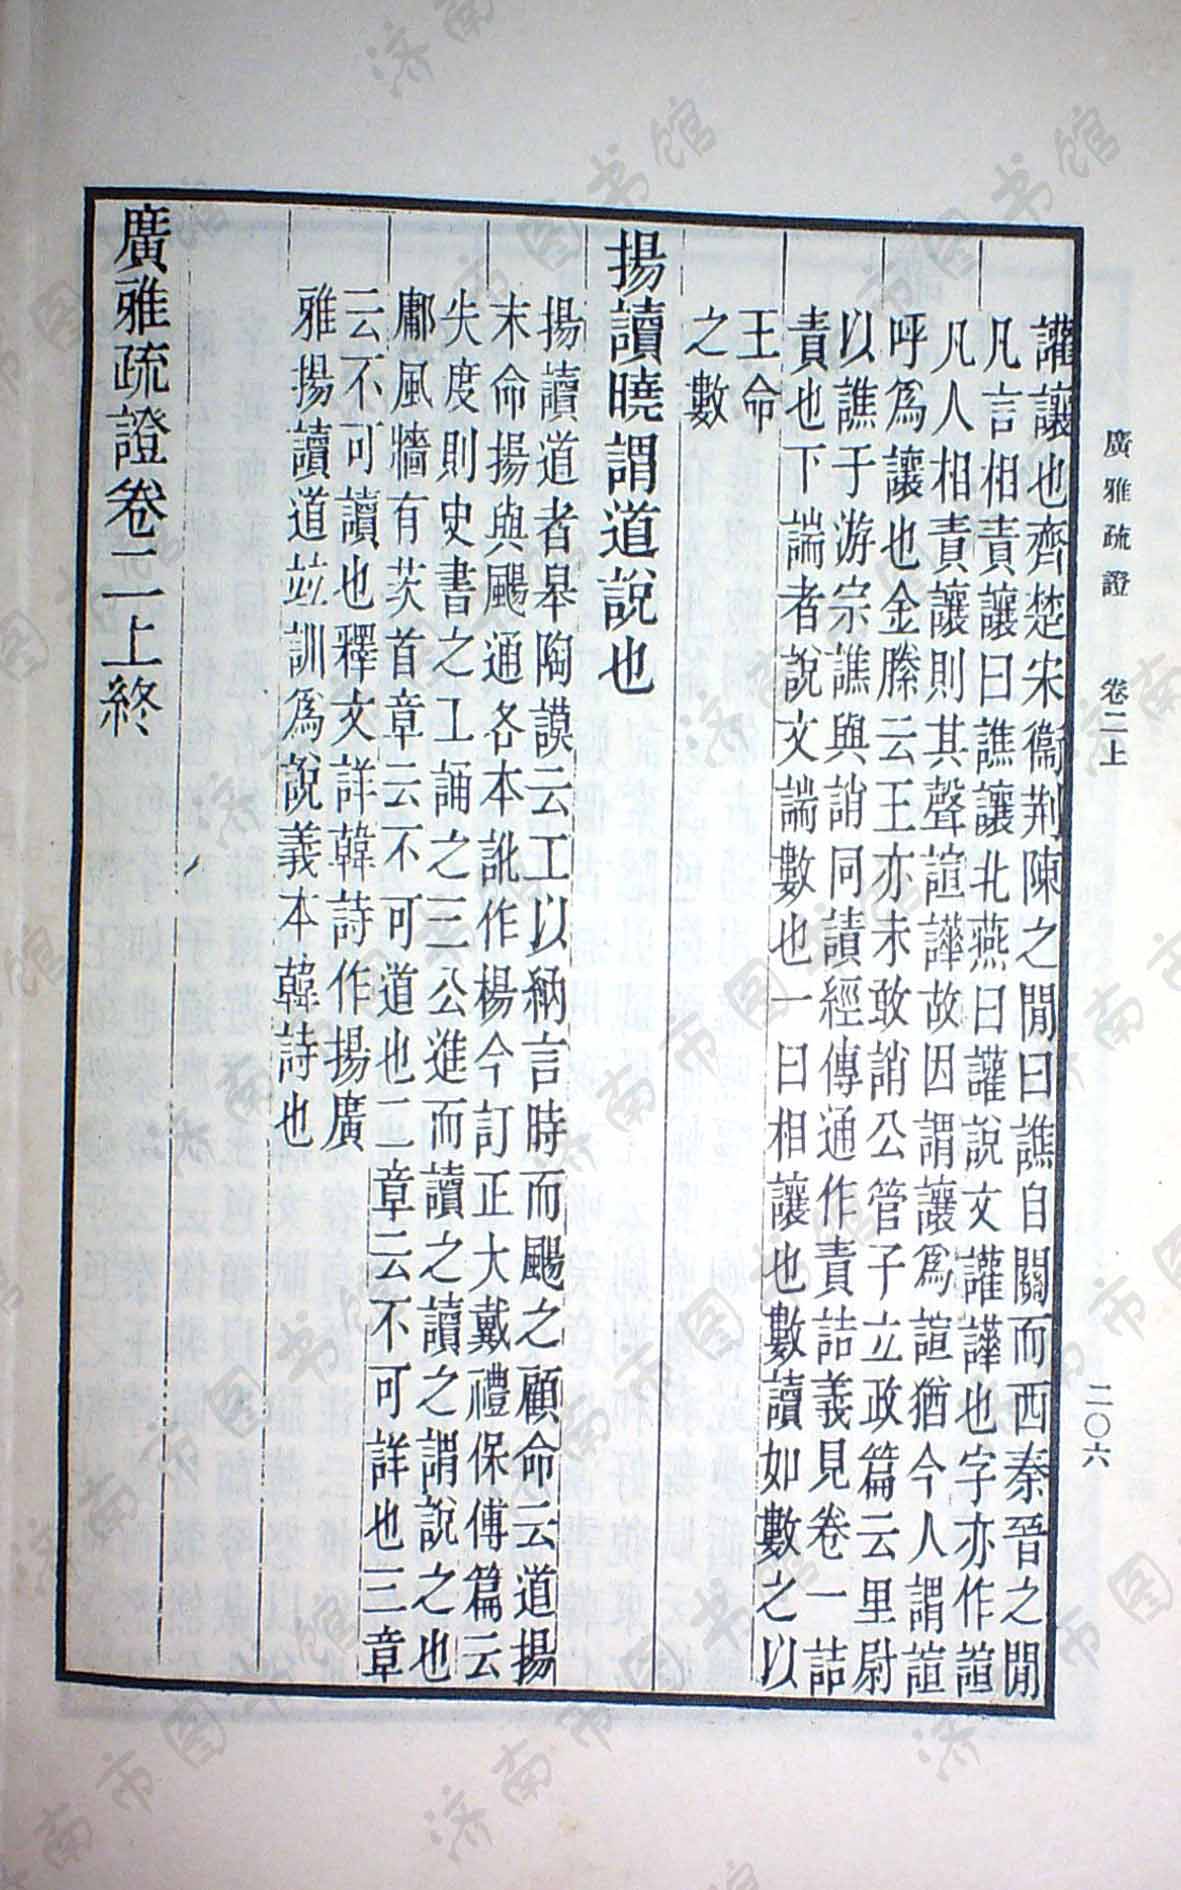 廣雅疏證　卷二上　二〇六
讙讓也齊楚宋衞荆陳之閒曰譙自關而西秦晉之閒
凡言相責讓曰譙讓北燕曰讙說文讙譁也字亦作諠
凡人相責讓則其聲諠譁故因謂讓爲諠猶今人謂諠
呼爲讓也金縢云王亦未敢誚公管子立政篇云里尉
以譙于游宗譙與誚同謮經傳通作責詰義見卷一詰
責也下諯者說文諯數也一曰相讓也數讀如數之以
王命
之數
揚讀曉謂道說也
揚讀道者皋陶謨云工以納言時而颺之顧命云道揚
末命揚與颺通各本訛作楊今訂正大戴禮保傅篇云
失度則史書之工誦之三公進而讀之讀之謂說之也
鄘風牆有茨首章云不可道也二章云不可詳也三章
云不可讀也釋文詳韓詩作揚廣
雅揚讀道竝訓爲說義本韓詩也
廣雅疏證卷二上終
济南市图书馆